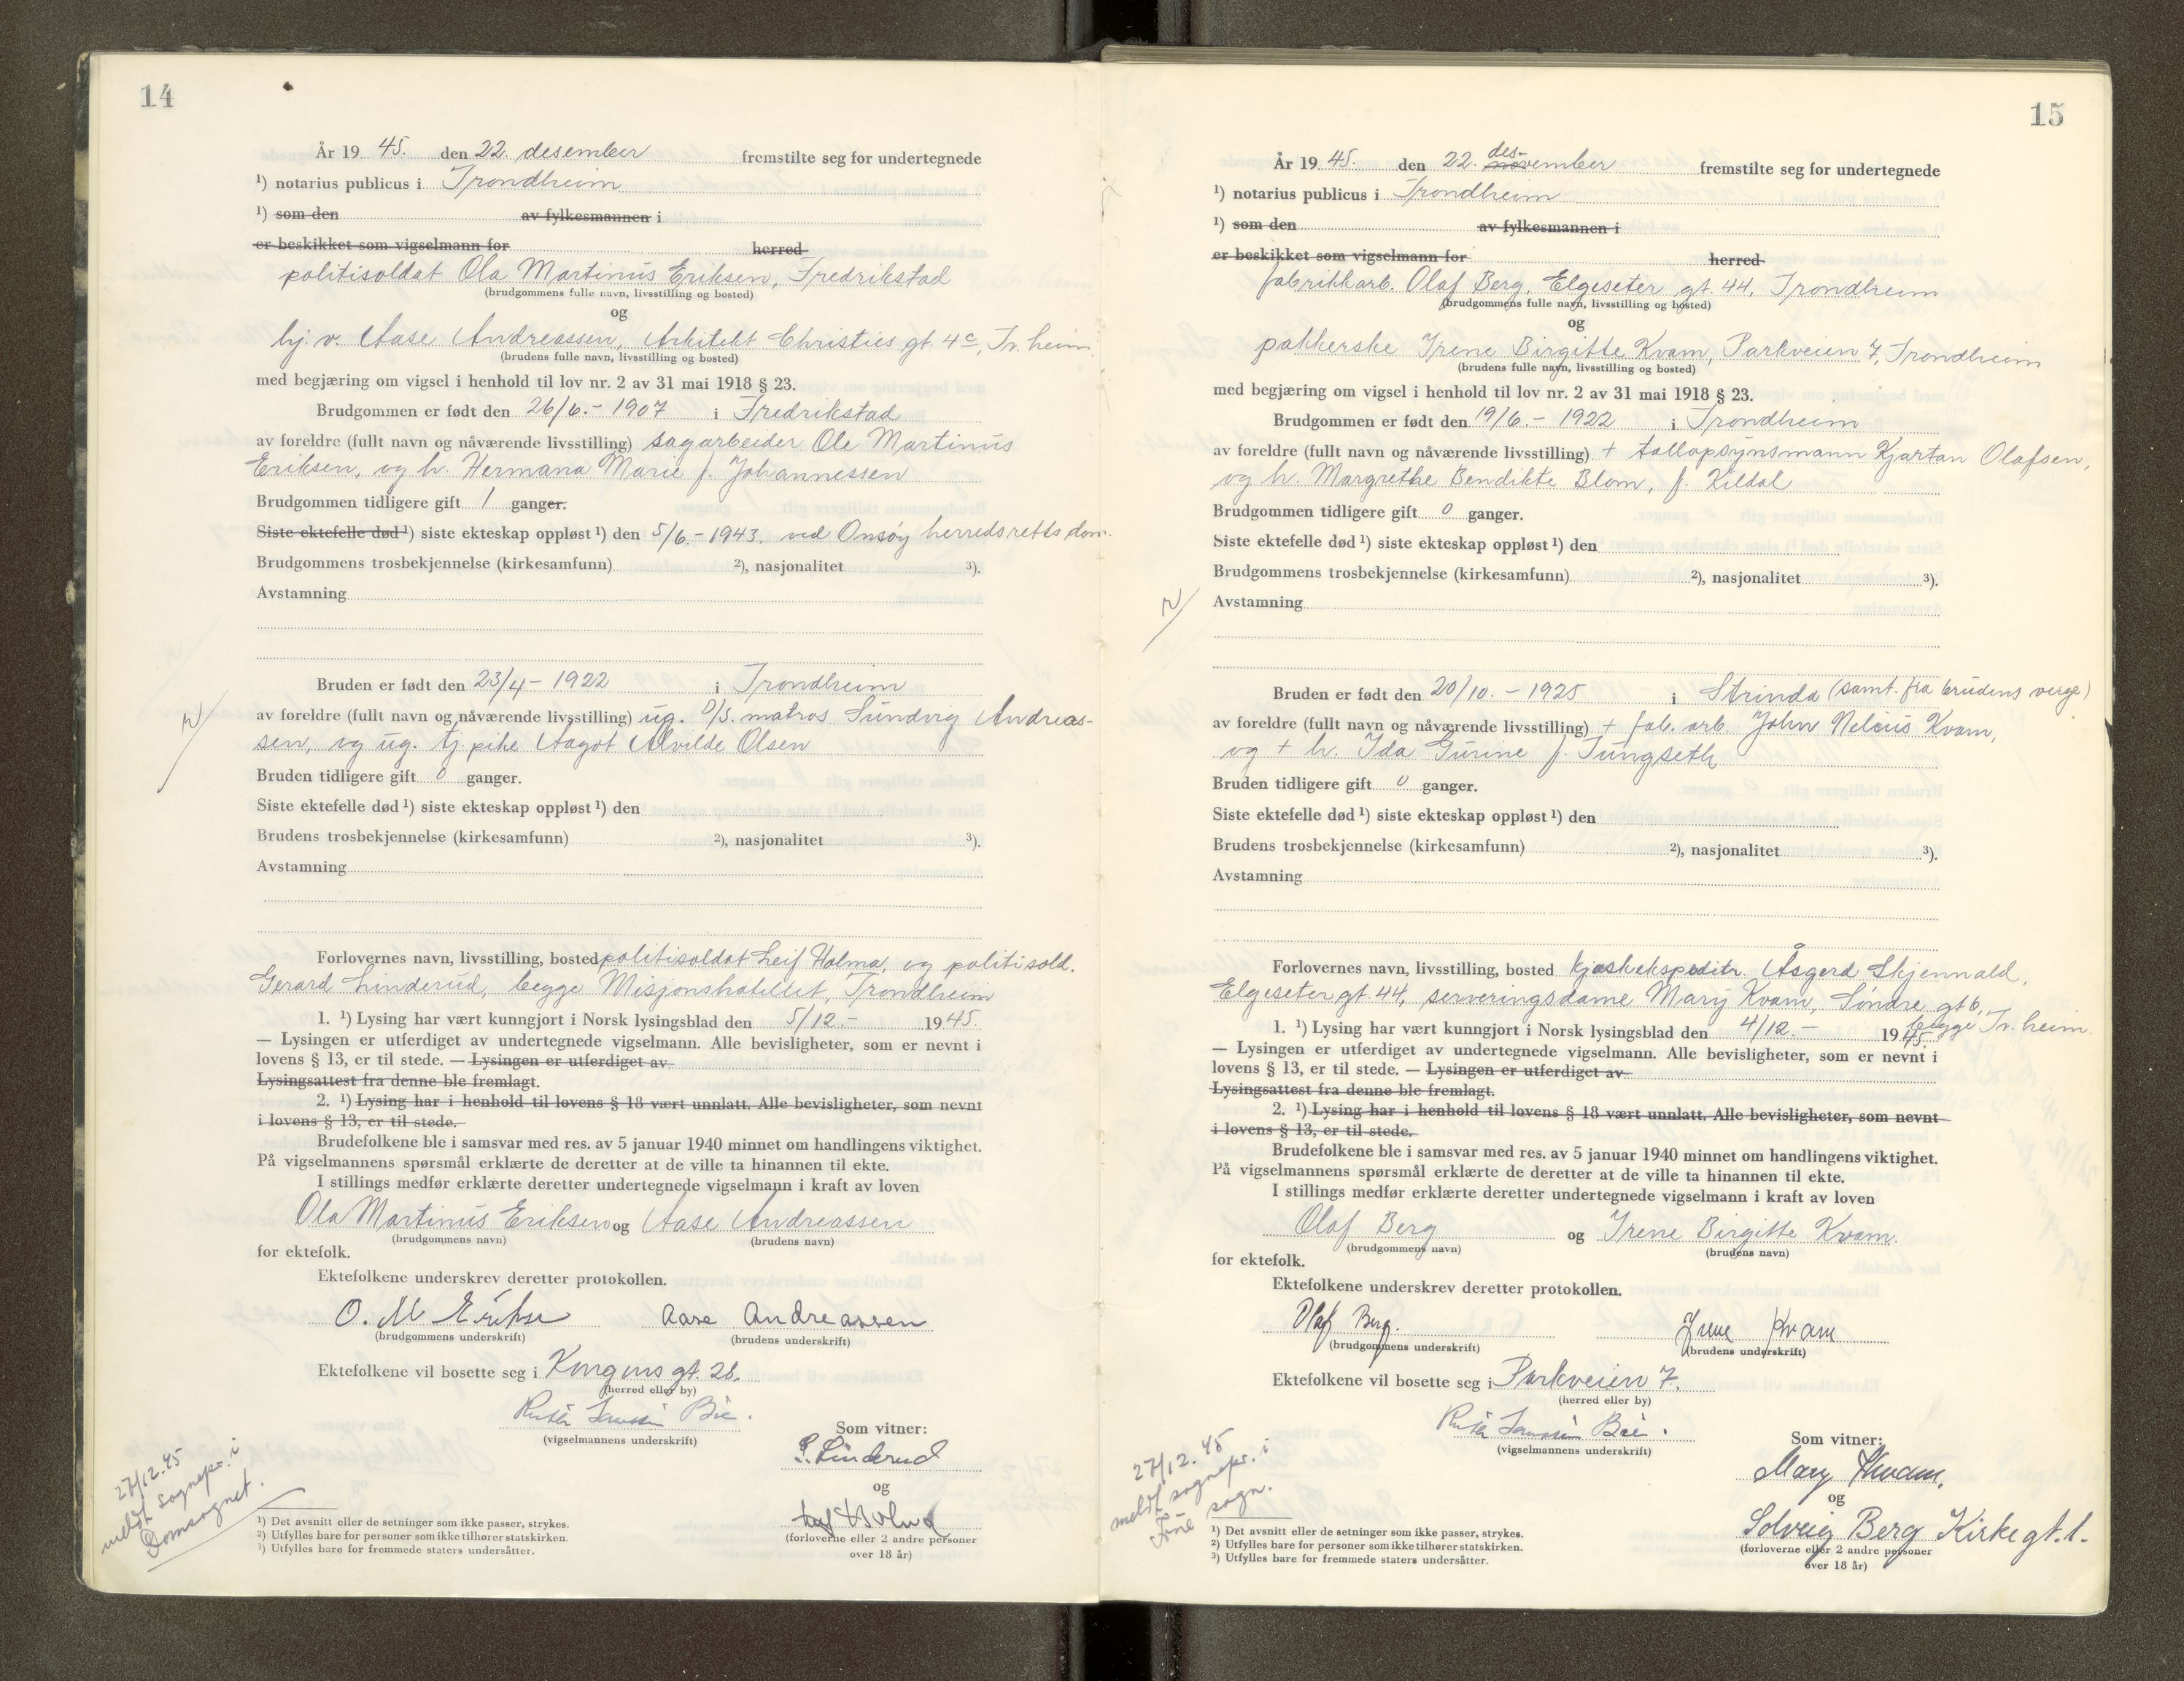 14
År 19 45. den 22. desember fremstilte seg for undertegnede
¹) notarius publicus i Trondheim
¹) som den av fylkesmannen i
er beskikket som vigselmann for herred
politisoldat Ola Martinus Eriksen, Fredrikstad
(brudgommens fulle navn, livsstilling og bosted)
og
hj. v. Aase Andreassen, Arkitekt Christies gt. 4c, Tr.heim.
(brudens fulle navn, livsstilling og bosted)
med begjæring om vigsel i henhold til lov nr. 2 av 31 mai 1918 § 23.
Brudgommen er født den 26/6.- 1907 i Fredrikstad
av foreldre (fullt navn og nåværende livsstilling) sagarbeider Ole Martinus
Eriksen, og h. Hermana Marie f. Johannessen
Brudgommen tidligere gift 1 ganger.
Siste ektefelle død ¹) siste ekteskap oppløst ¹) den 5/6.- 1943. ved Onsøy herredsretts dom.
Brudgommens trosbekjennelse (kirkesamfunn) ²), nasjonalitet ³).
Avstamning
Bruden er født den 23/4 - 1922 i Trondheim
av foreldre (fullt navn og nåværende livsstilling) ug. D/S. matros Sundvig Andreas-
sen, og ug. tj.pike Aagot Alvilde Olsen
Bruden tidligere gift 0 ganger.
Siste ektefelle død ¹) siste ekteskap oppløst ¹) den
Brudens trosbekjennelse (kirkesamfunn) ²), nasjonalitet ³).
Avstamning
Forlovernes navn, livsstilling, bosted politisoldat Leif Holma, og politisold.
Gerard Linderud, begge Misjonshotellet, Trondheim
1. ¹) Lysing har vært kunngjort i Norsk lysingsblad den 5/12.- 1945.
— Lysingen er utferdiget av undertegnede vigselmann. Alle bevisligheter, som er nevnt i
lovens § 13, er til stede. — Lysingen er utferdiget av
Lysingsattest fra denne ble fremlagt.
2. ¹) Lysing har i henhold til lovens § 18 vært unnlatt. Alle bevisligheter, som nevnt
i lovens § 13, er til stede.
Brudefolkene ble i samsvar med res. av 5 januar 1940 minnet om handlingens viktighet.
På vigselmannens spørsmål erklærte de deretter at de ville ta hinannen til ekte.
I stillings medfør erklærte deretter undertegnede vigselmann i kraft av loven
Ola Martinus Eriksen og Aase Andreassen
(brudgommens navn) (brudens navn)
for ektefolk.
Ektefolkene underskrev deretter protokollen.
O. M Erikse Aase Andreassen
(brudgommens underskrift) (brudens underskrift)
Ektefolkene vil bosette seg i Kongens gt. 26.
(herred eller by)
(vigselmannens underskrift)
Som vitner:
G. Linderud
og
(forloverne eller 2 andre personer
over 18 år)
27/12.45
meldt sognepr. i
Domsognet.
¹) Det avsnitt eller de setninger som ikke passer, strykes.
²) Utfylles bare for personer som ikke tilhører statskirken.
³) Utfylles bare for fremmede staters undersåtter.
15
År 19 45. den 22. november des- fremstilte seg for undertegnede
¹) notarius publicus i Trondheim
¹) som den av fylkesmannen i
er beskikket som vigselmann for herred
fabrikkarb. Olaf Berg, Elgeseter gt. 44, Trondheim
(brudgommens fulle navn, livsstilling og bosted)
og
pakkerske Irene Birgitte Kvam, Parkveien 7, Trondheim
(brudens fulle navn, livsstilling og bosted)
med begjæring om vigsel i henhold til lov nr. 2 av 31 mai 1918 § 23.
Brudgommen er født den 19/6.- 1922 i Trondheim
av foreldre (fullt navn og nåværende livsstilling) + tollopsynsmann Kjartan Olafsen,
og h. Margrethe Bendikte Blom, f. Kildal
Brudgommen tidligere gift 0 ganger.
Siste ektefelle død ¹) siste ekteskap oppløst ¹) den
Brudgommens trosbekjennelse (kirkesamfunn) ²), nasjonalitet ³).
Avstamning
Bruden er født den 20/10.- 1925 i Strinda (samt. fra brudens verge)
av foreldre (fullt navn og nåværende livsstilling) + fab. arb. John Nelius Kvam,
og + h. Ida Gurine f. Tungseth
Bruden tidligere gift 0 ganger.
Siste ektefelle død ¹) siste ekteskap oppløst ¹) den
Brudens trosbekjennelse (kirkesamfunn) ²), nasjonalitet ³).
Avstamning
Forlovernes navn, livsstilling, bosted kjoskekspeditr. Åsgerd Skjennald,
Elgeseter gt 44, serveringsdame Mary Kvam, Søndre gt 6,
begge Tr.heim
1. ¹) Lysing har vært kunngjort i Norsk lysingsblad den 4/12.- 1945.
— Lysingen er utferdiget av undertegnede vigselmann. Alle bevisligheter, som er nevnt i
lovens § 13, er til stede. — Lysingen er utferdiget av
Lysingsattest fra denne ble fremlagt.
2. ¹) Lysing har i henhold til lovens § 18 vært unnlatt. Alle bevisligheter, som nevnt
i lovens § 13, er til stede.
Brudefolkene ble i samsvar med res. av 5 januar 1940 minnet om handlingens viktighet.
På vigselmannens spørsmål erklærte de deretter at de ville ta hinannen til ekte.
I stillings medfør erklærte deretter undertegnede vigselmann i kraft av loven
Olaf Berg og Irene Birgitte Kvam.
(brudgommens navn) (brudens navn)
for ektefolk.
Ektefolkene underskrev deretter protokollen.
Olaf Berg. Irene Kvam
(brudgommens underskrift) (brudens underskrift)
Ektefolkene vil bosette seg i Parkveien 7.
(herred eller by)
(vigselmannens underskrift)
Som vitner:
Mary Kvam.
og
Solveig Berg Kirkegt. 1.
(forloverne eller 2 andre personer
over 18 år)
27/12.45
meldt sognepr. i
sogn.
¹) Det avsnitt eller de setninger som ikke passer, strykes.
²) Utfylles bare for personer som ikke tilhører statskirken.
³) Utfylles bare for fremmede staters undersåtter.